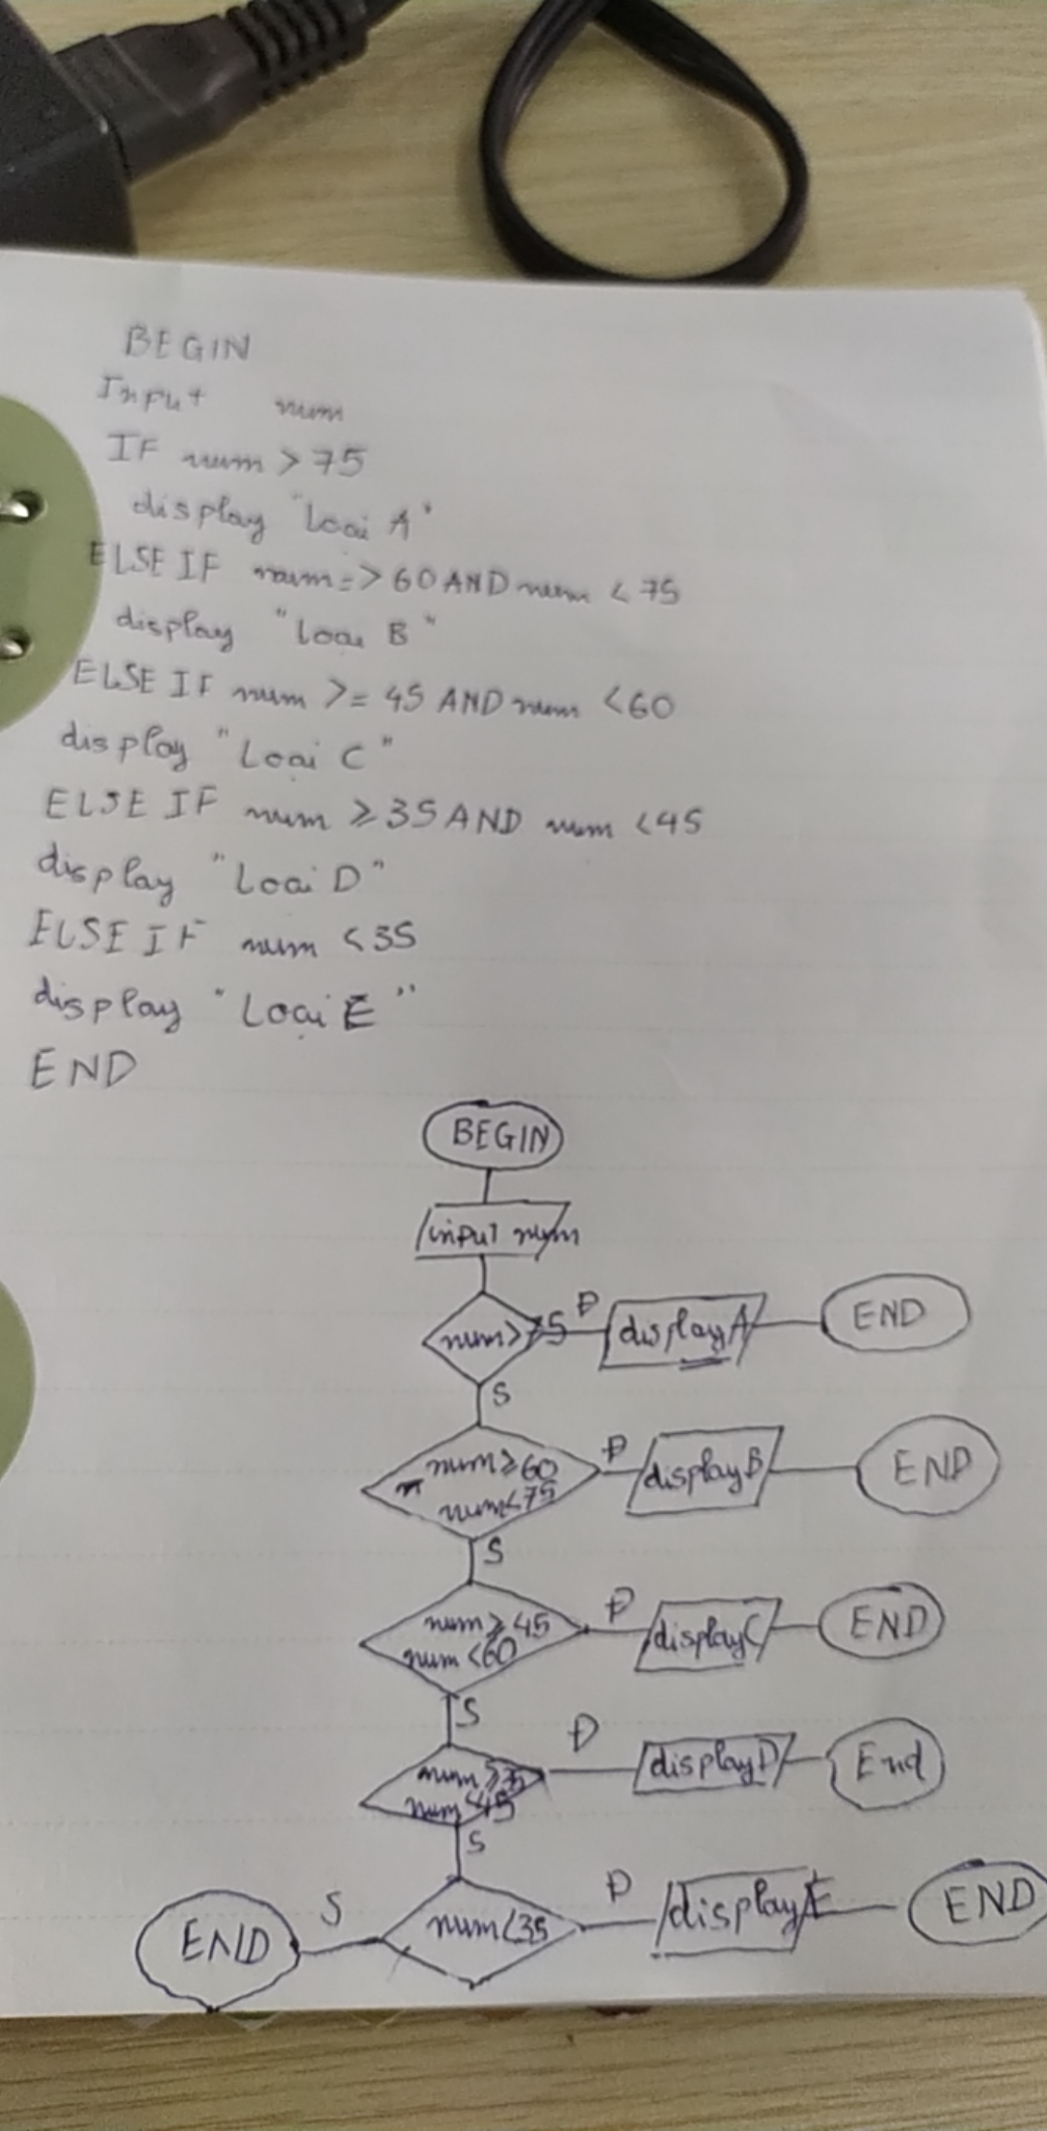 BEGIN
Input num
IF num > 75
display "Loại A"
ELSE IF num => 60 AND num < 75
display "Loại B"
ELSE IF num >= 45 AND num < 60
display "Loại C"
ELSE IF num ≥ 35 AND num < 45
display "Loại D"
ELSE IF num < 35
display "Loại E"
END
BEGIN
input num
num > 75 Đ display A END
S
num ≥ 60 Đ display B END
num < 75
S
num ≥ 45 Đ display C END
num < 60
S
num ≥ 35 Đ display D End
num < 45
S
END S num < 35 Đ display E END